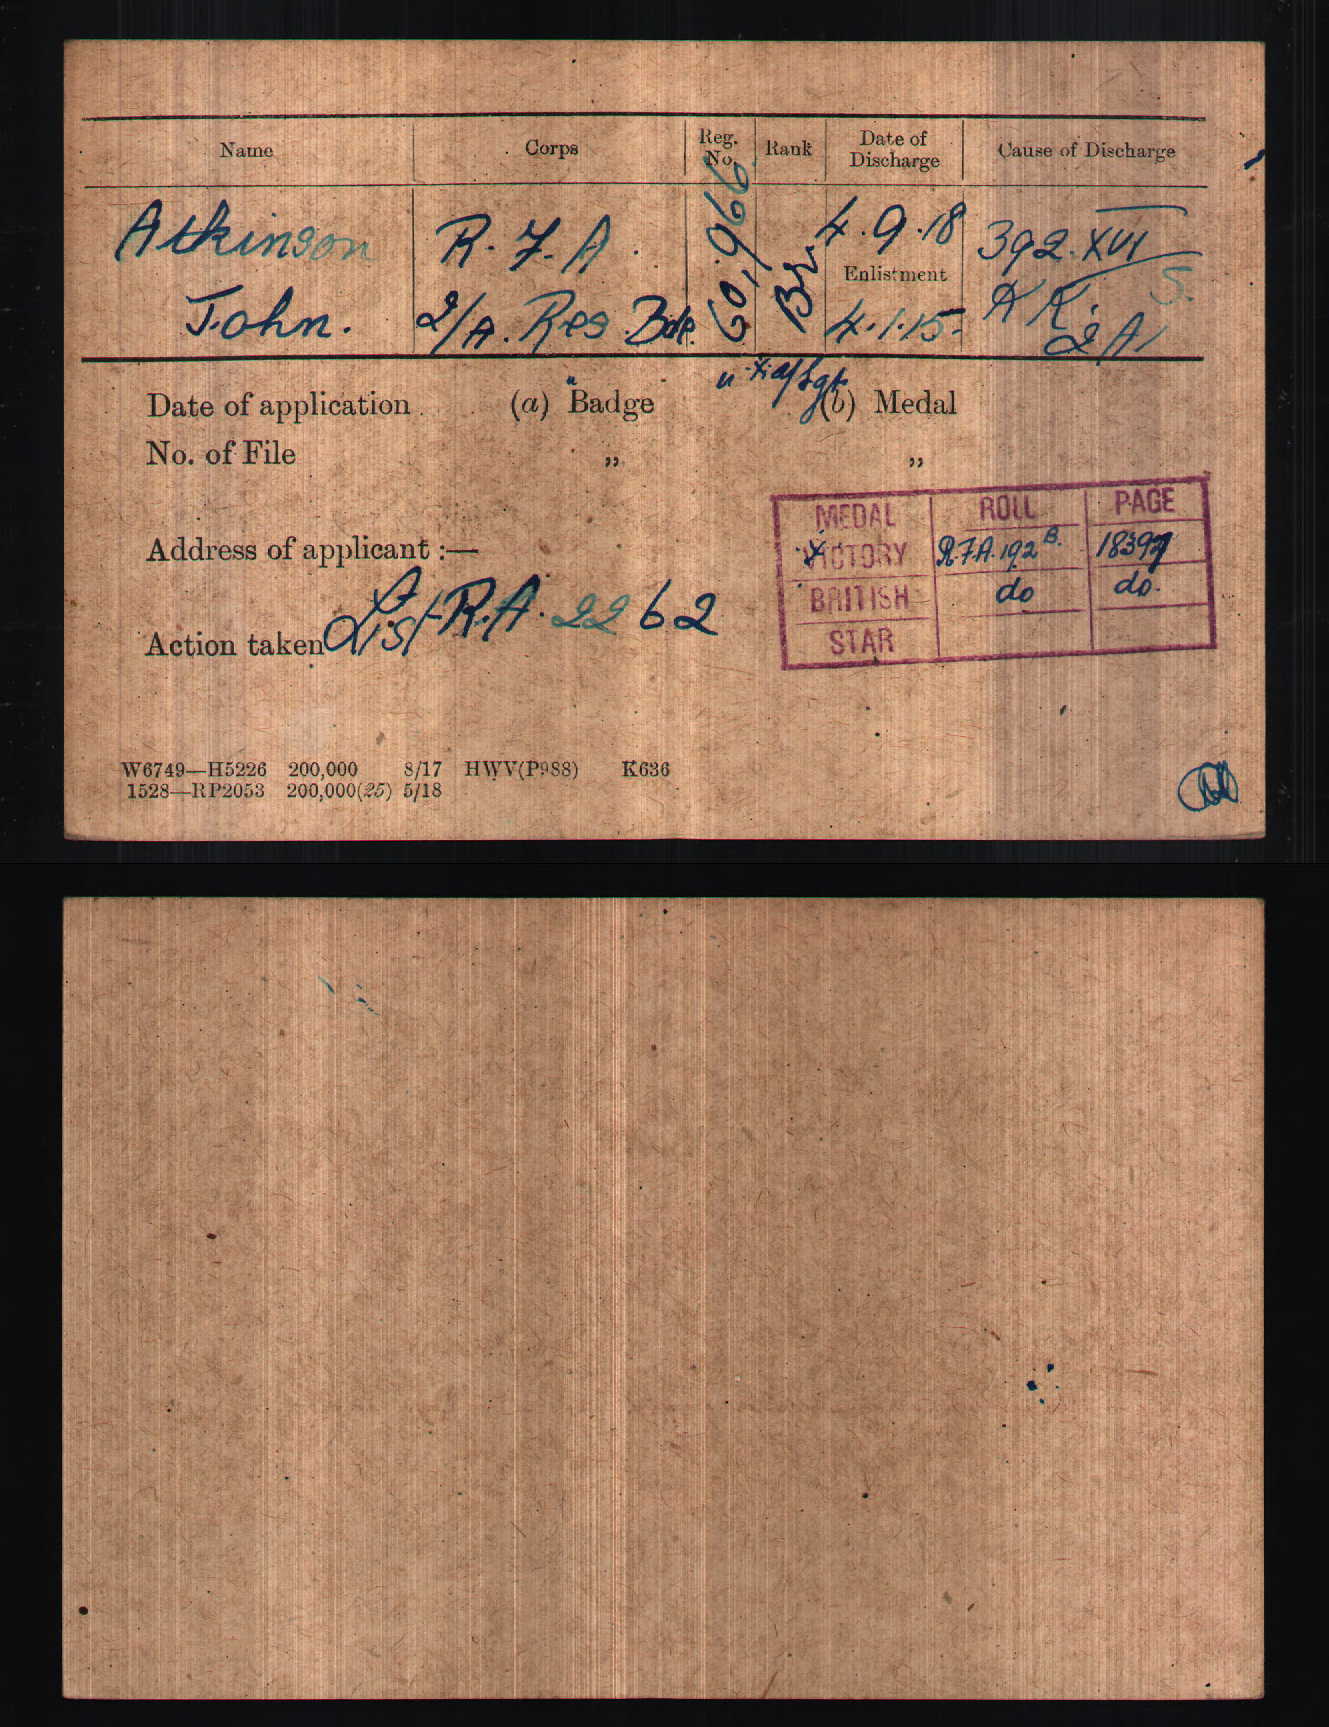 Name Corps Reg. No. Rank Date of Discharge Cause of Discharge
Atkinson R.F.A. 60,966 Br. 4.9.18 392.XVI
Enlistment S.
John. 2/A. Res. Bde. 4.1.15. KR.
2A1
" x a/Sgt
Date of application (a) Badge (b) Medal
No. of File „ „
MEDAL ROLL PAGE
Address of applicant :—
VICTORY R.F.A. 192B. 18397
BRITISH do do.
Action taken List R.A. 2262
STAR
W6749—H5226 200,000 8/17 HWV(P988) K636
1528—RP2053 200,000(25) 5/18